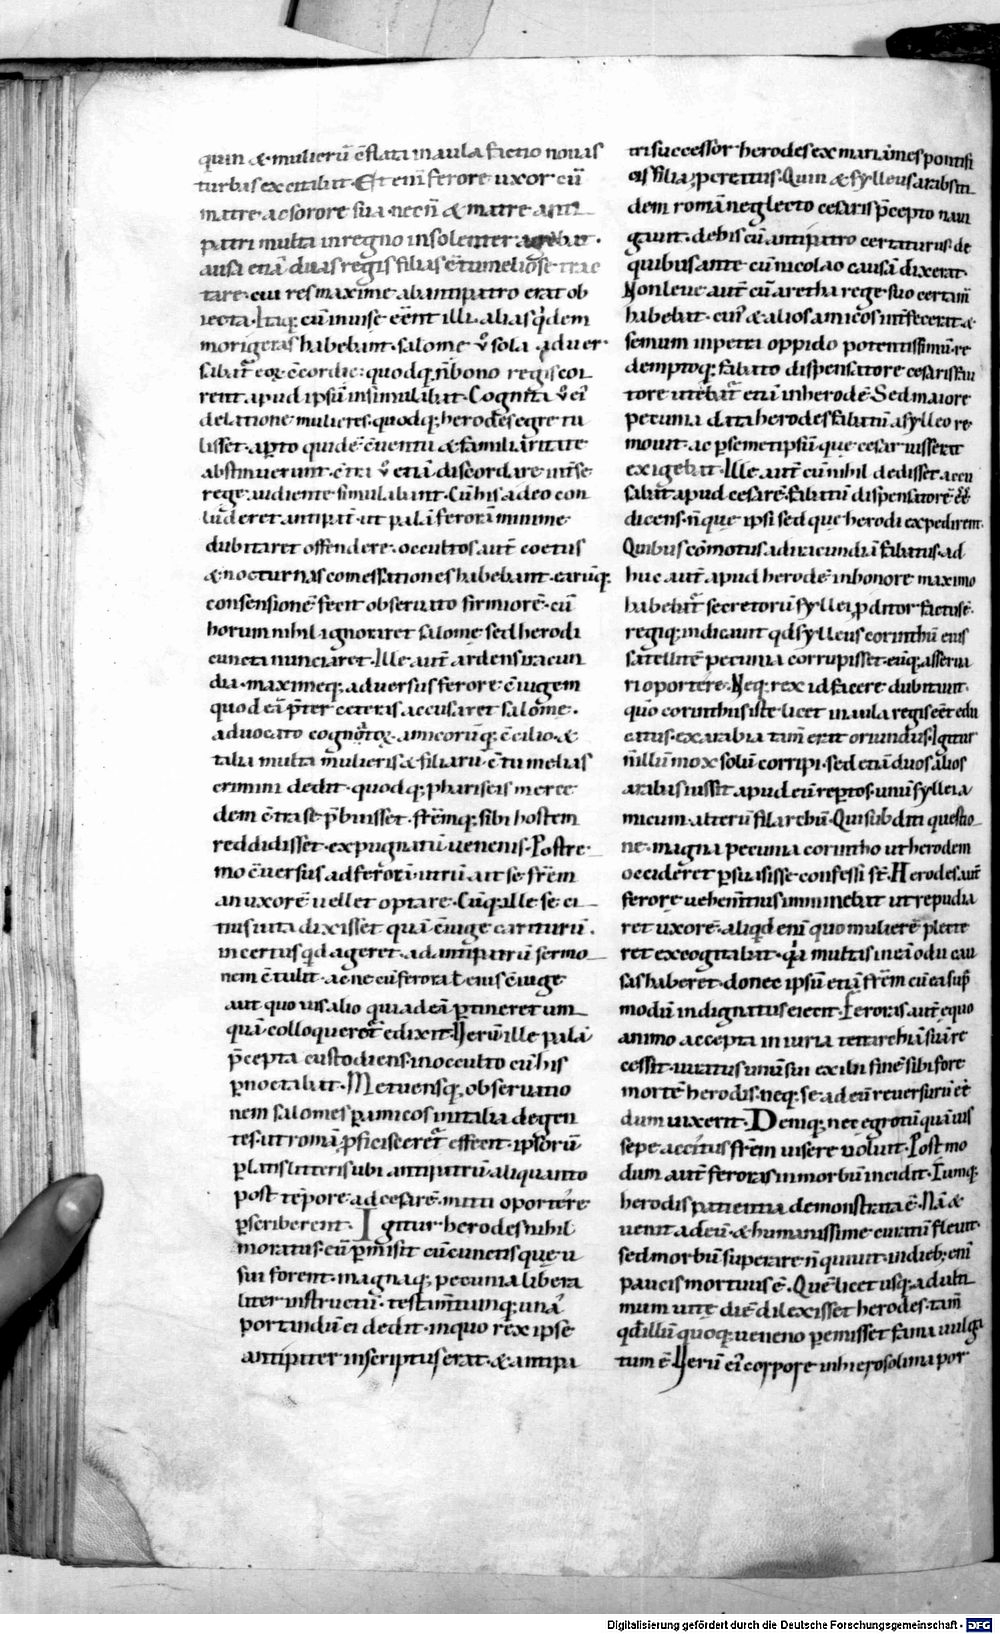 quin & mulierū c̄flata in aula factio nouas
turbas excitabit. Et enī ferore uxor cū
matre ac sorore sua necn̄ & matre anti
patri multa in regno insolenter agebat.
ausa etiā duas regis filias c̄tumeliose trac
tare. cui res maxime ab antipatro erat ob
iecta. Itaq; cū inuise eēnt illi. alias q̇dem
morigeras habebant. salome ů sola aduer
sabat̄ eoꝝ c̄cordie. quodq; n̄ bono regis coi
rent apud ipsū insimulabat. Cognita ů ei
delatione mulieres. quodq; herodes egre tu
lisset. aperto quidē c̄uentu & familiaritate
abstinuerunt. c̄tra ů etiā discordare int̄ se
rege audiente simulabant. Cū his adeo con
luderet antipat̄. ut palā ferorā minime
dubitaret offendere. occultos aut̄ coetus
& nocturnas comessationes habebant. earūq;
consensionē fecit obseruatio firmiorē. cū
horum nihil ignoraret salome sed herodi
cuncta nunciaret. Ille aut̄ ardens iracun
dia. maximeq; aduersus ferore c̄iugem
quod eā p̄ter ceteras accusaret salome.
aduocato cognatoꝝ. amicorūq; c̄cilio. &
talia multa mulieris & filiarū c̄tumelias
crimini dedit. quodq; phariseis merce
dem c̄tra se p̄buisset. fr̄emq; sibi hostem
reddidisset. expugnatū uenenis. Postre
mo c̄uersus ad ferorā. utrū ait se fr̄em
an uxorē uellet optare. Cūq; ille se ci
tius uita dixisset quā c̄iuge cariturū.
incertus qd ageret. ad antipatrū sermo
nem c̄tulit. ac ne cū ferora t eius c̄iuge
aut quouis alio qui ad eā ꝑtineret um
quā colloqueret̄ edixit. Verū ille palā
p̄cepta custodiens. in occulto cū his
ꝑnoctabat. Metuensq; obseruatio
nem salomes. ꝑ amicos in italia degen
tes. ut romā ꝓficisceret̄ effecit. ipsorū
ꝑlatis litteris ubi antipatrū aliquanto
post tēpore ad cesarē mitti oportere
ꝑscriberent. Igitur herodes nihil
moratus. eū ꝑmisit cū cunctis quę u
sui forent. magnaq; pecunia libera
liter instructū. testam̄tumq; unā
portandū ei dedit. in quo rex ipse
antipater inscriptus erat. & antipa
tri successor herodes ex mariāmes pontifi
cis filia ꝓcreatus. Quin & sylleus arabs ti
dem romā neglecto cesaris p̄cepto naui
gauit. de his cū antipatro certaturus. de
quibus ante cū nicolao causā dixerat.
Non leue aut̄ cū aretha rege suo certam̄
habebat. cui' & alios amicos int̄fecerat. &
semum in petri oppido potentissimū. re
demptoq; fabato dispensatore cesaris fau
tore utebat̄ etiā in herodē. Sed maiore
pecunia data herodes fabatū a sylleo re
mouit. ac ꝑ semetipsū que cesar iusserat
exigebat. Ille aut̄ cū nihil dedisset. accu
sabat apud cesarē. fabatū dispensatorē eē
dicens. n̄ que ipsi sed que herodi expedirent.
Quibus cōmotus ad iracundiā fabatus. ad
huc aut̄ apud herodē in honore maximo
habebat̄. secretorū syllei ꝓditor factus ē.
regiq; indicauit qd sylleus corinthū eius
satellitē pecunia corrupisset. eūq; asserua
ri oportere. Neq; rex id facere dubitauit.
quo corinthus iste licet in aula regis eēt edu
catus. ex arabia tam̄ erat oriundus. Igitur
n̄ illū mox solū corripi. sed etiā duos alios
arabas iussit apud eū reꝑtos. unū syllei a
micum. alterū filarchū. Qui sub diti questio
ne. magna pecunia corintho ut herodem
occideret ꝑsuasisse confessi st̄. Herodes aut̄
ferore uehem̄tius imminebat ut repudia
ret uxorē. aliqd enī quo mulierē plecte
ret excogitabat. q̄a multas in eā odii cau
sas haberet. donec ipsū etiā fr̄em cū ea sup̄
modū indignatus eiecit. Feroras aut̄ equo
animo accepta iniuria tetrarchiā suā re
cessit. iuratus unū sui exilii finē sibi fore
mortē herodis. neq; se ad eū reuersurū eē
dum uixerit. Deniq; nec egrotū quāuis
sepe accitus fr̄em uisere uoluit. Post mo
dum aut̄ feroras in morbū incidit. Tumq;
herodis patientia demonstrata ē. Nā &
uenit ad eū. & humanissime curatū fleuit.
sed morbū superare n̄ quiuit. in dieb; enī
paucis mortuus ē. Quē licet usq; ad ulti
mum uite diē dilexisset herodes. tam̄
qd illū quoq; ueneno ꝑemisset fama uulga
tum ē. Verū ei' corpore in hierosolima por
Digitalisierung gefördert durch die Deutsche Forschungsgemeinschaft - DFG